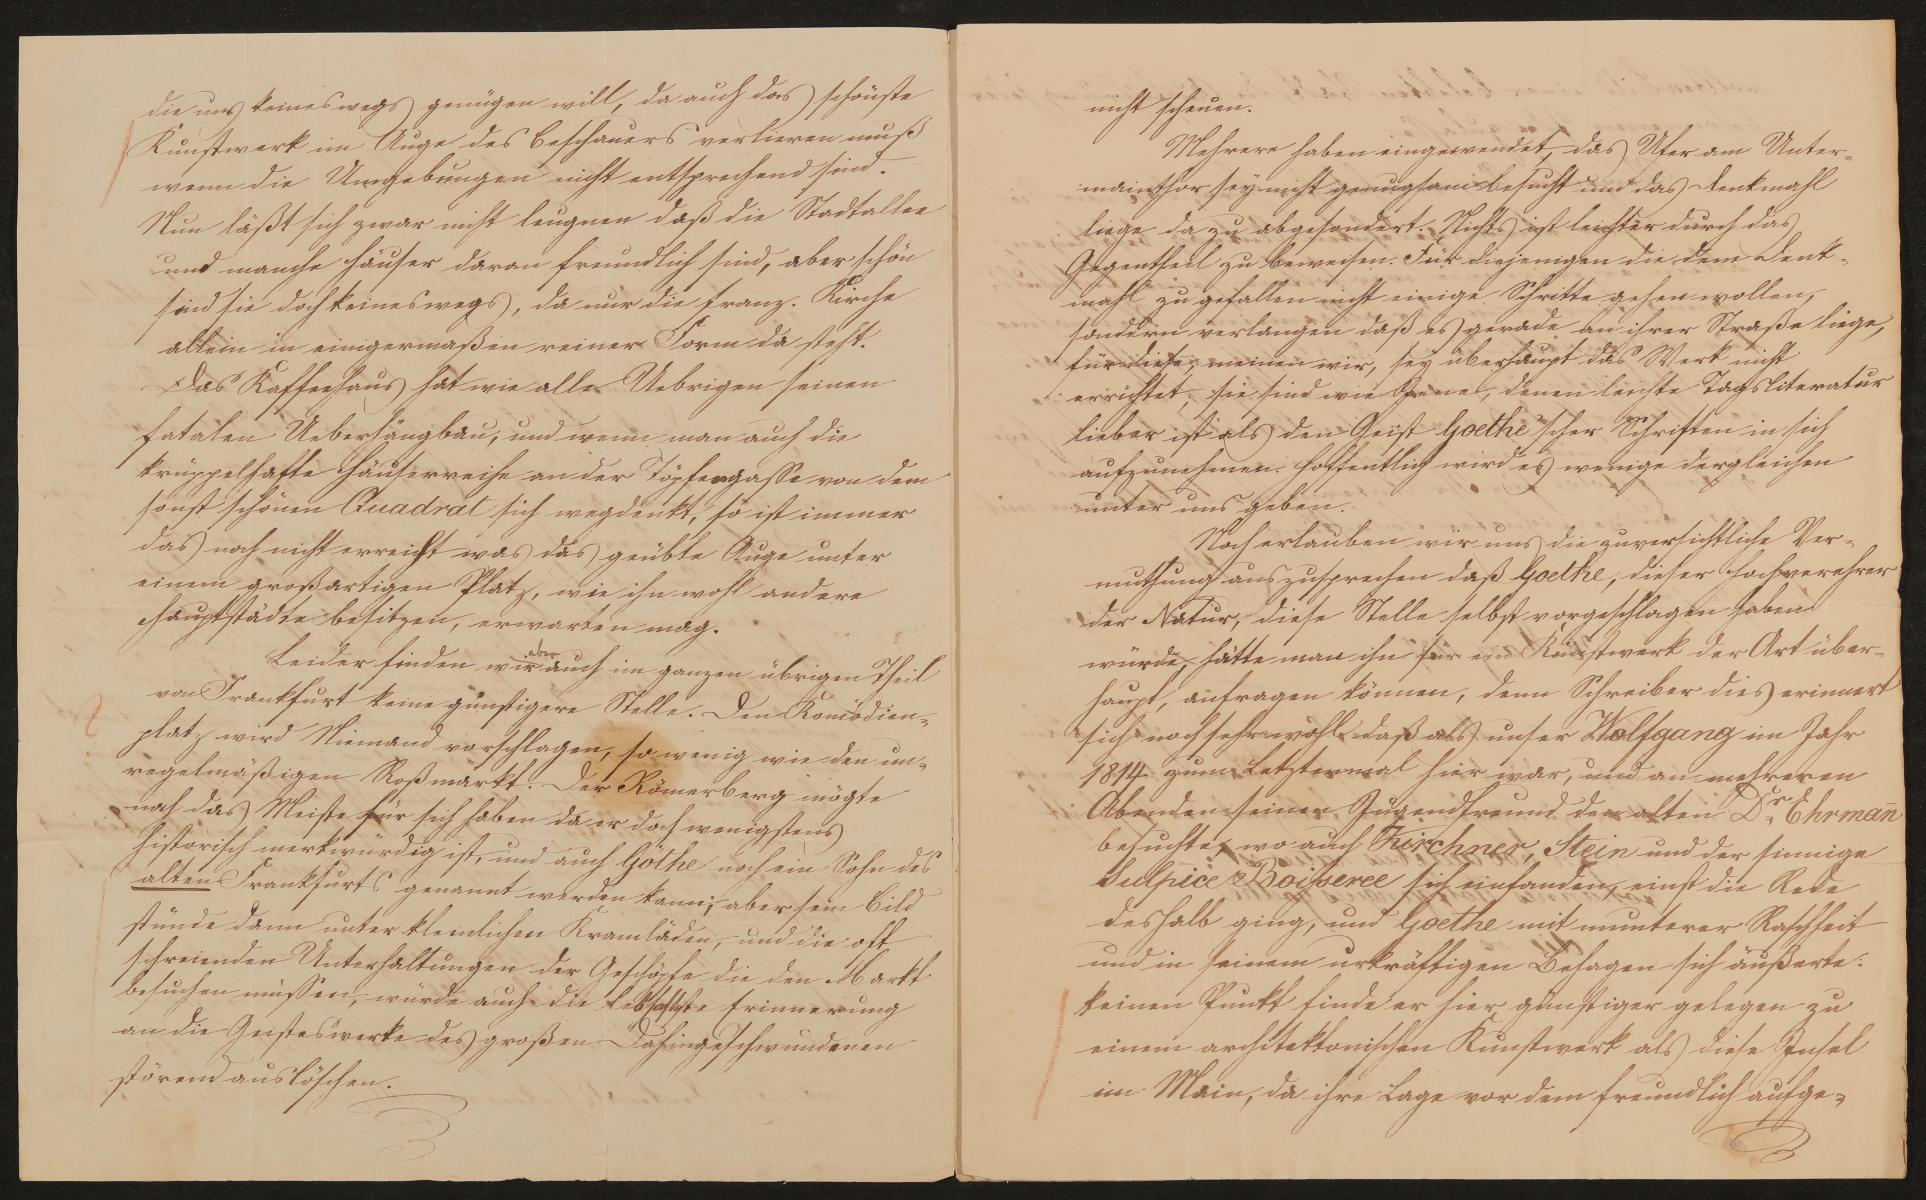 die uns keineswegs genügen will, da auch das schönste
Kunstwerk im Auge des Beschauers verlieren muß
wenn die Umgebungen nicht entsprechend sind.
Nun läßt sich zwar nicht leugnen daß die Stadtallee
und manche Häuser daran freundlich sind, aber schön
sind sie doch keineswegs, da nur die franz. Kirche
allein in einigermaßen reiner Form da steht.
Das Kaffeehaus hat wie alle Uebrigen seinen
fatalen Ueberhängbau, und wenn man auch die
krüppelhafte Häuserreihe an der Töpfengasse von dem
sonst schönen Quadrat sich wegdenkt, so ist immer
das noch nicht erreicht was das geübte Auge unter
einem großartigen Platz, wie ihn wohl andere
Hauptstädte besitzen, erwarten mag.
Leider finden wir aber auch im ganzen übrigen Theil
von Frankfurt keine günstigere Stelle. Den Komödien-
platz wird Niemand vorschlagen, so wenig wie den un-
regelmäßigen Roßmarkt. Der Römerberg mögte
noch das Meiste für sich haben da er doch wenigstens
historisch merkwürdig ist, und auch Göthe noch ein Sohn des
alten Frankfurts genannt werden kann; aber sein Bild
stünde dann unter kleinlichen Kramläden, und die oft
schreienden Unterhaltungen der Geschöpfe die den Markt
besuchen müssen, würde auch die lebhafteste Erinnerung
an die Geisteswerke des großen Dahingeschwundenen
störend auslöschen.
nicht scheuen.
Mehrere haben eingewendet, das Ufer am Unter-
mainthor sey nicht genugsam besucht und das Denkmahl
liege da zu abgesondert. Nichts ist leichter durch das
Gegentheil zu beweisen. Für diejenigen die dem Denk-
mahl zu gefallen nicht einige Schritte gehen wollen,
sondern verlangen daß es gerade an ihrer Straße liege,
für diese, meinen wir, sey überhaupt das Werk nicht
errichtet, sie sind wie Jene, denen leichte Tagsliteratur
lieber ist als den Geist Goethe'scher Schriften in sich
aufzunehmen. Hoffentlich wird es wenige dergleichen
unter uns geben.
Noch erlauben wir uns die zuversichtliche Ver-
muthung auszusprechen daß Goethe, dieser Hochverehrer
der Natur, diese Stelle selbst vorgeschlagen haben
würde, hätte man ihn für ein Kunstwerk der Art über-
haupt, anfragen können, denn Schreiber dies erinnert
sich noch sehr wohl daß als unser Wolfgang im Jahr
1814 zum Letztenmal hier war, und an mehreren
Abenden seinen Jugendfreund den alten Dr. Ehrmañ
besuchte, wo auch Kirchner, Stein und der sinnige
Sulpice Boisseree sich einfanden, einst die Rede
deshalb ging, und Goethe mit munterer Raschheit
und in seinem urkräftigen Behagen sich äußerte:
keinen Punkt finde er hier günstiger gelegen zu
einem architektonischen Kunstwerk als diese Insel
im Main, da ihre Lage vor dem freundlich aufge-